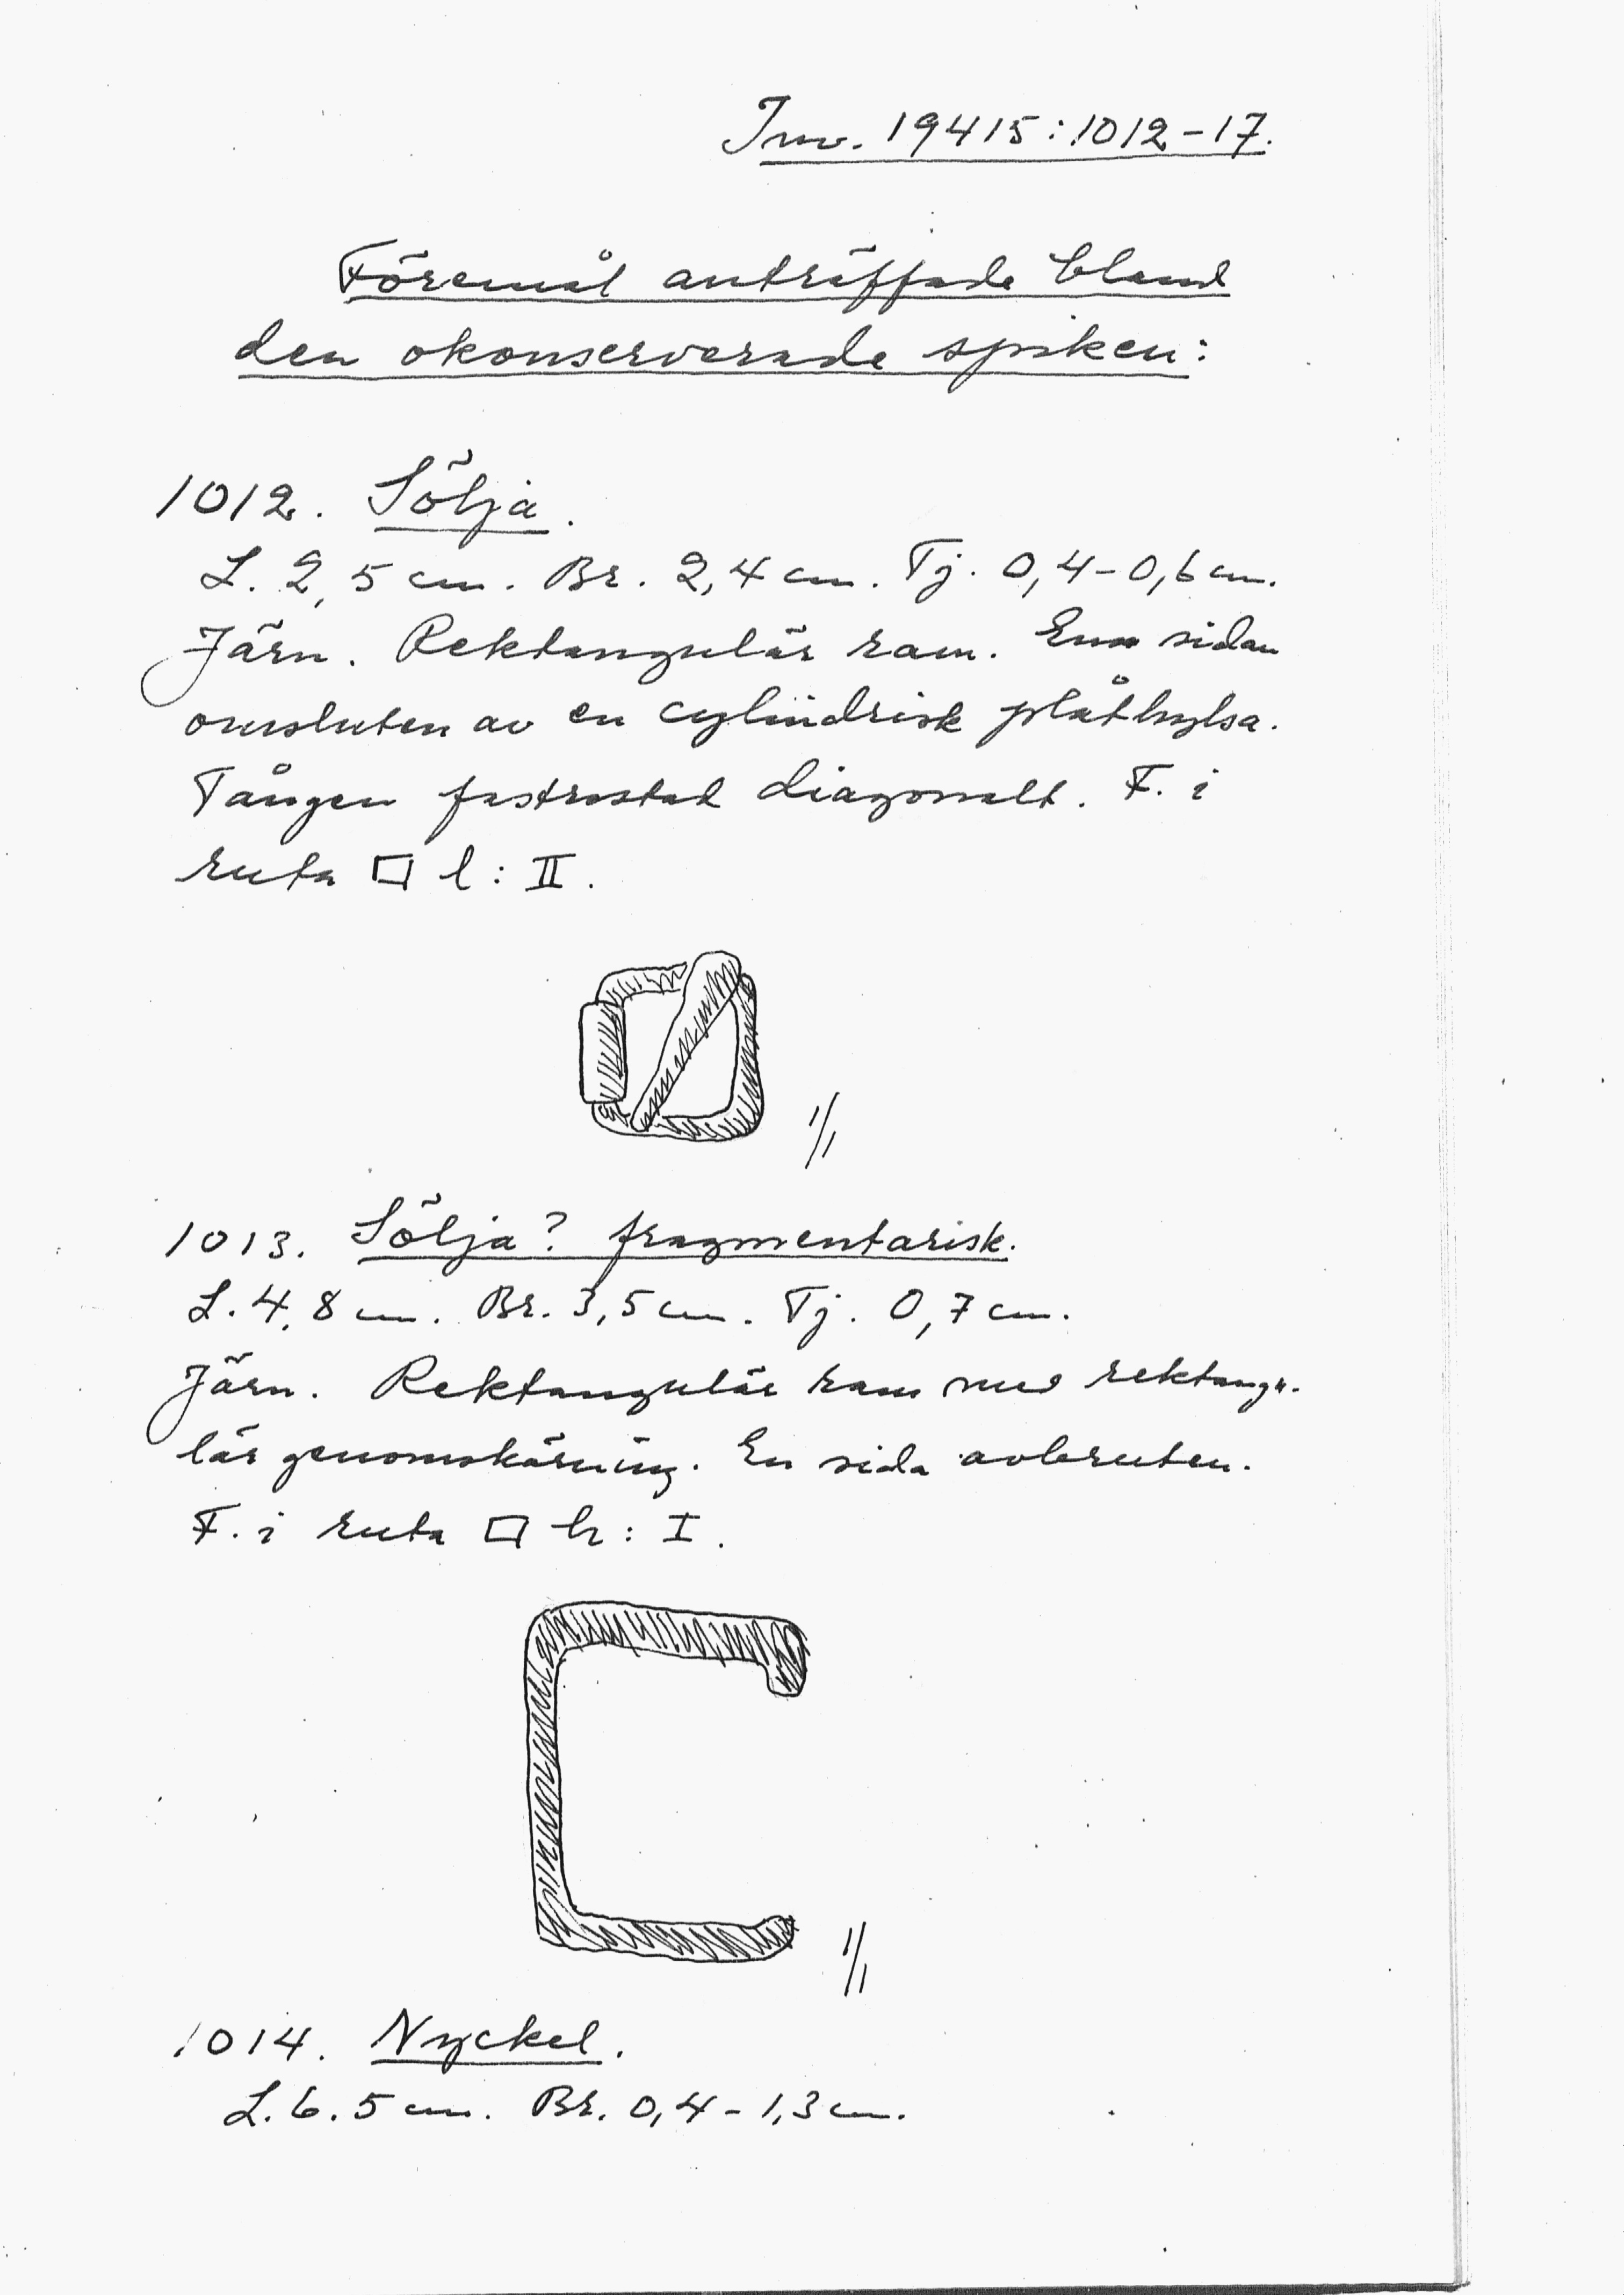 Inv. 19415:1012-17.
Föremål anträffade bland
den okonserverade spiken:
1012. Sölja.
L. 2,5 cm. Br. 2,4 cm. Tj. 0,4-0,6 cm.
Järn. Rektangulär ram. Ena sidan
omsluten av en cylindrisk plåthylsa.
Tången fastrostad diagonalt. F. i
ruta □ l: II.
1/1
1013. Sölja? fragmentarisk.
L. 4,8 cm. Br. 3,5 cm. Tj. 0,7 cm.
Järn. Rektangulär ram med rektangu-
lär genomskärning. En sida avbruten.
F. i ruta □ h: I.
1/1
1014. Nyckel.
L. 6.5 cm. Br. 0,4-1,3 cm.